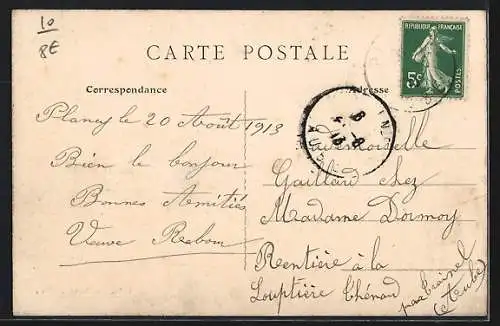 10
8E
CARTE POSTALE
Correspondance
Adresse
REPUBLIQUE FRANÇAISE
5c
POSTES
Plancy le 20 Août 1913
Bien le bonjour
Bonnes Amitiés
Veuve
Mademoiselle
Gaillard chez
Madame Dormoy
Rentière à la
Louptière Thénard
par
(Aube)